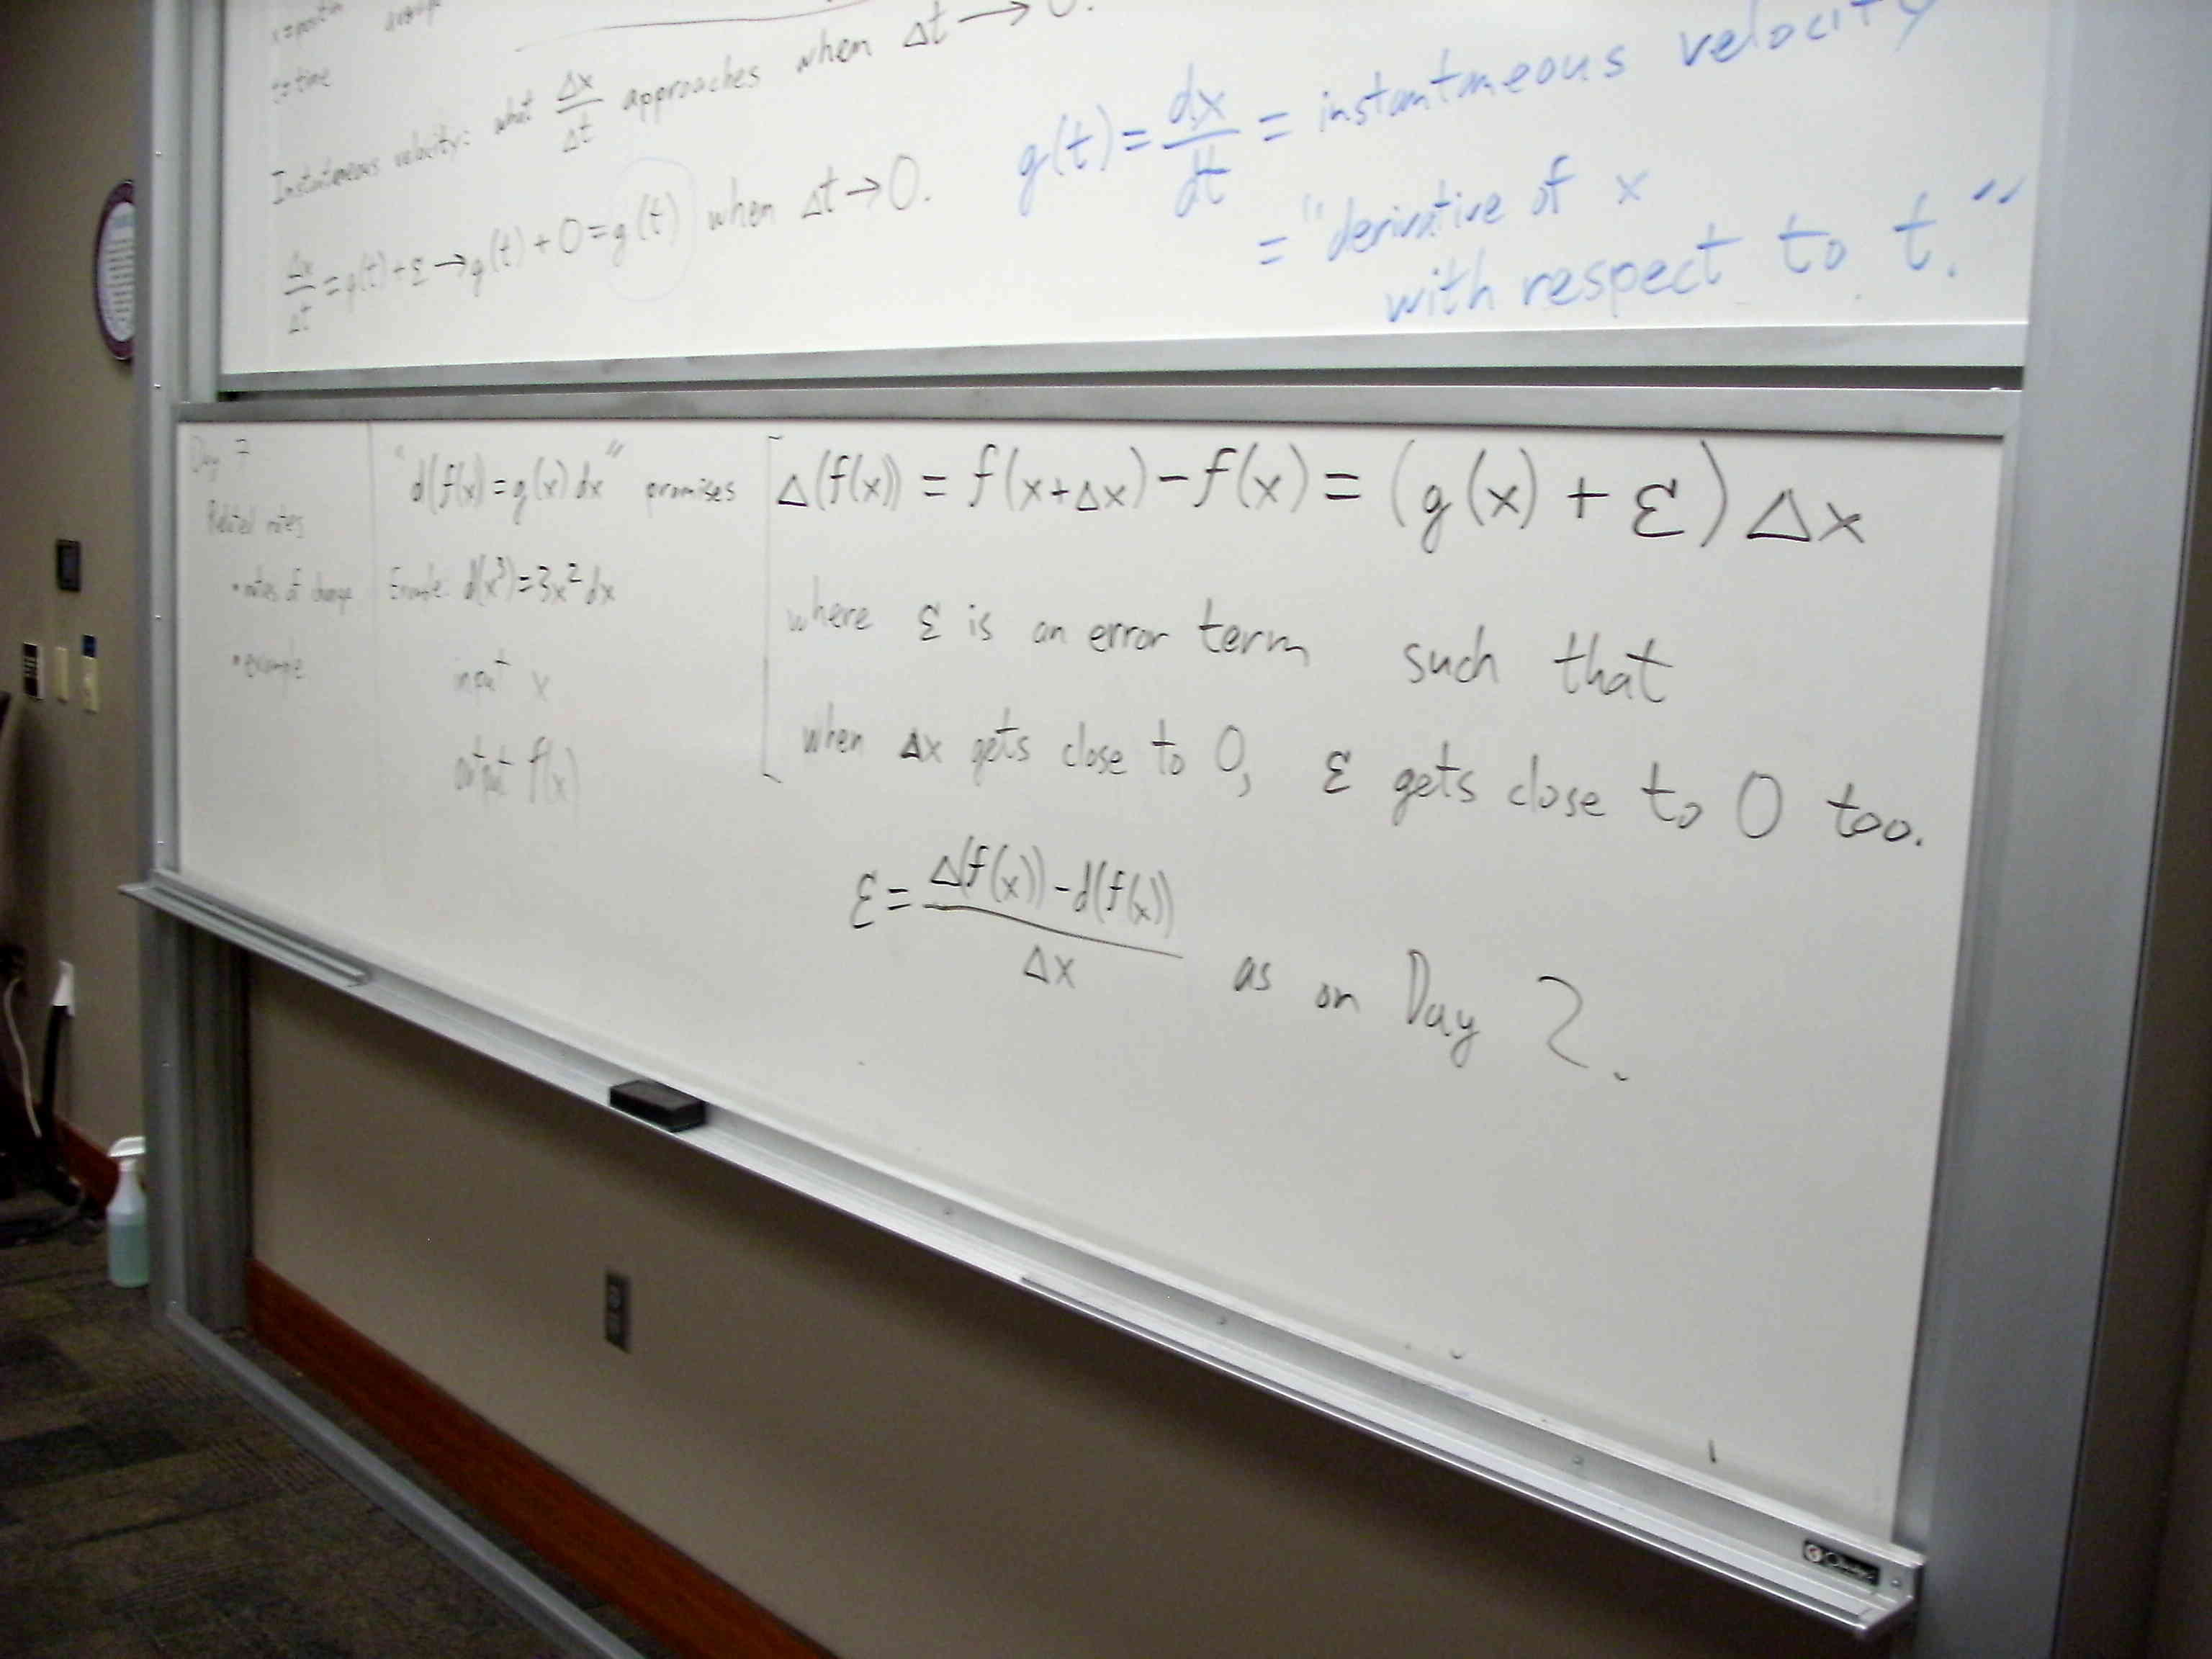 to time
Instantaneous velocity: what Δx/Δt approaches when Δt → 0.
Δx/Δt = g(t) + ε → g(t) + 0 = g(t) when Δt → 0.
g(t) = dx/dt = instantaneous velocity
= "derivative of x
with respect to t."
Day 7
Related rates
• rates of change
• example
"d(f(x) = g(x) dx" promises
Example: d(x³) = 3x² dx
input x
output f(x)
Δ(f(x)) = f(x+Δx) - f(x) = (g(x) + ε) Δx
where ε is an error term such that
when Δx gets close to 0, ε gets close to 0 too.
ε = Δ(f(x)) - d(f(x))/Δx as on Day 2.